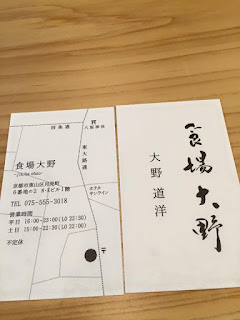 四条通
八坂神社
東大路通
食場大野
-jikiba ohno-
京都市東山区月見町
6番地の2 8・8ビル1階
TEL 075-555-3018
営業時間
平日 16:00-23:00(LO 22:30)
土日 15:00-22:30(LO 22:00)
不定休
ホテル
サンライン
食場大野
大野道洋